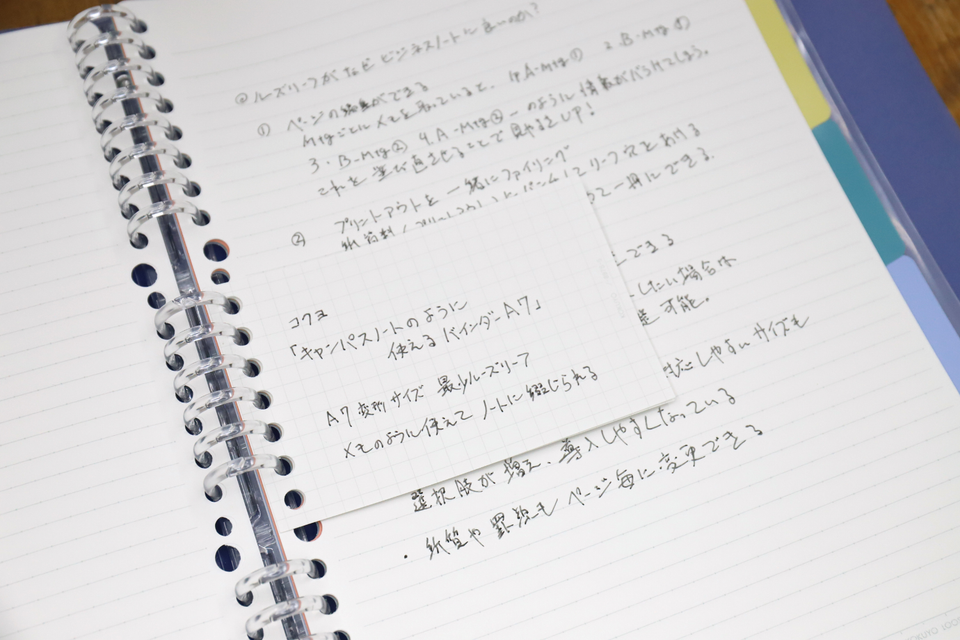 ルーズリーフがなぜビジネスノートに良いのか?
① ページの編集ができる
Mtgごとにメモを取っていると、1.A-Mtg① 2.B-Mtg①
3.B-Mtg② 4.A-Mtg② ーのように情報がバラけてしまう。
これを並び直させることで
② プリントアウトを一緒にファイリング
できる
したい場合は
可能。
しやすいサイズも
選択肢が増え、導入しやすくなっている
・紙質や罫線もページ毎に変更できる
コクヨ
「キャンパスノートのように
使えるバインダーA7」
A7変形サイズ 最少ルーズリーフ
メモのように使えて ノートに綴じられる